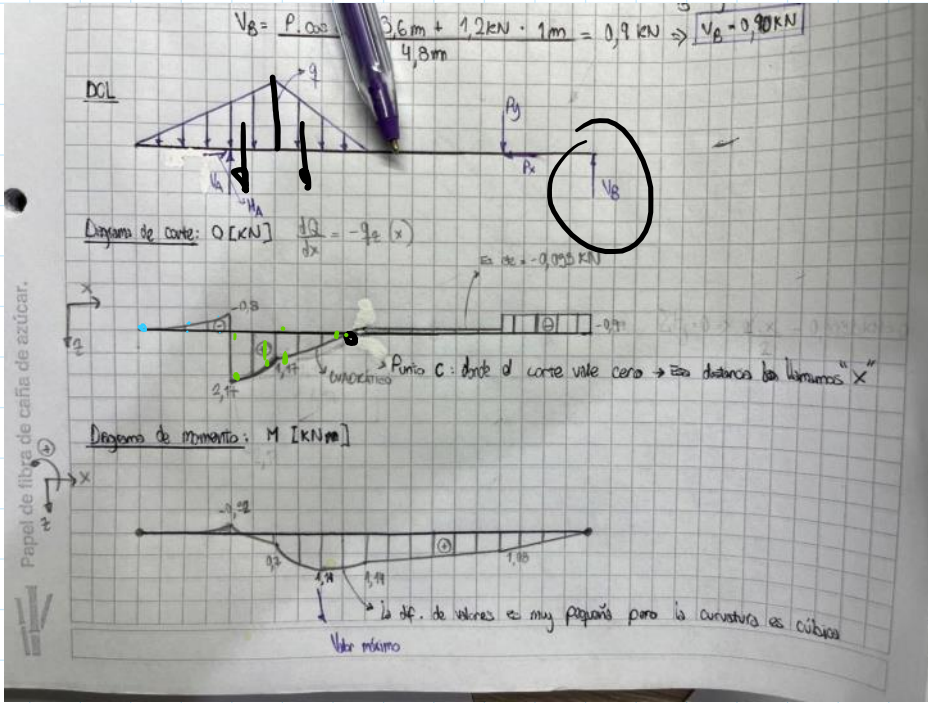 V_B = P.cos 3,6m + 1,2KN · 1m = 0,9 KN ⇒ V_B = 0,90KN
4,8m
DCL
q
Py
Px
V_A
H_A
V_B
Diagrama de corte: Q [KN] dQ/dx = -q_z (x)
-0,093 KN
x
z
-0,8
-0,9
2,17
1,17
CUADRÁTICO
Punto C: donde el corte vale cero → Esa distancia la llamamos "x"
Diagrama de momento: M [KNm]
x
z
0,7
1,14
1,08
la dif. de valores es muy pequeña pero la curvatura es cúbica
Valor máximo
Papel de fibra de caña de azúcar.